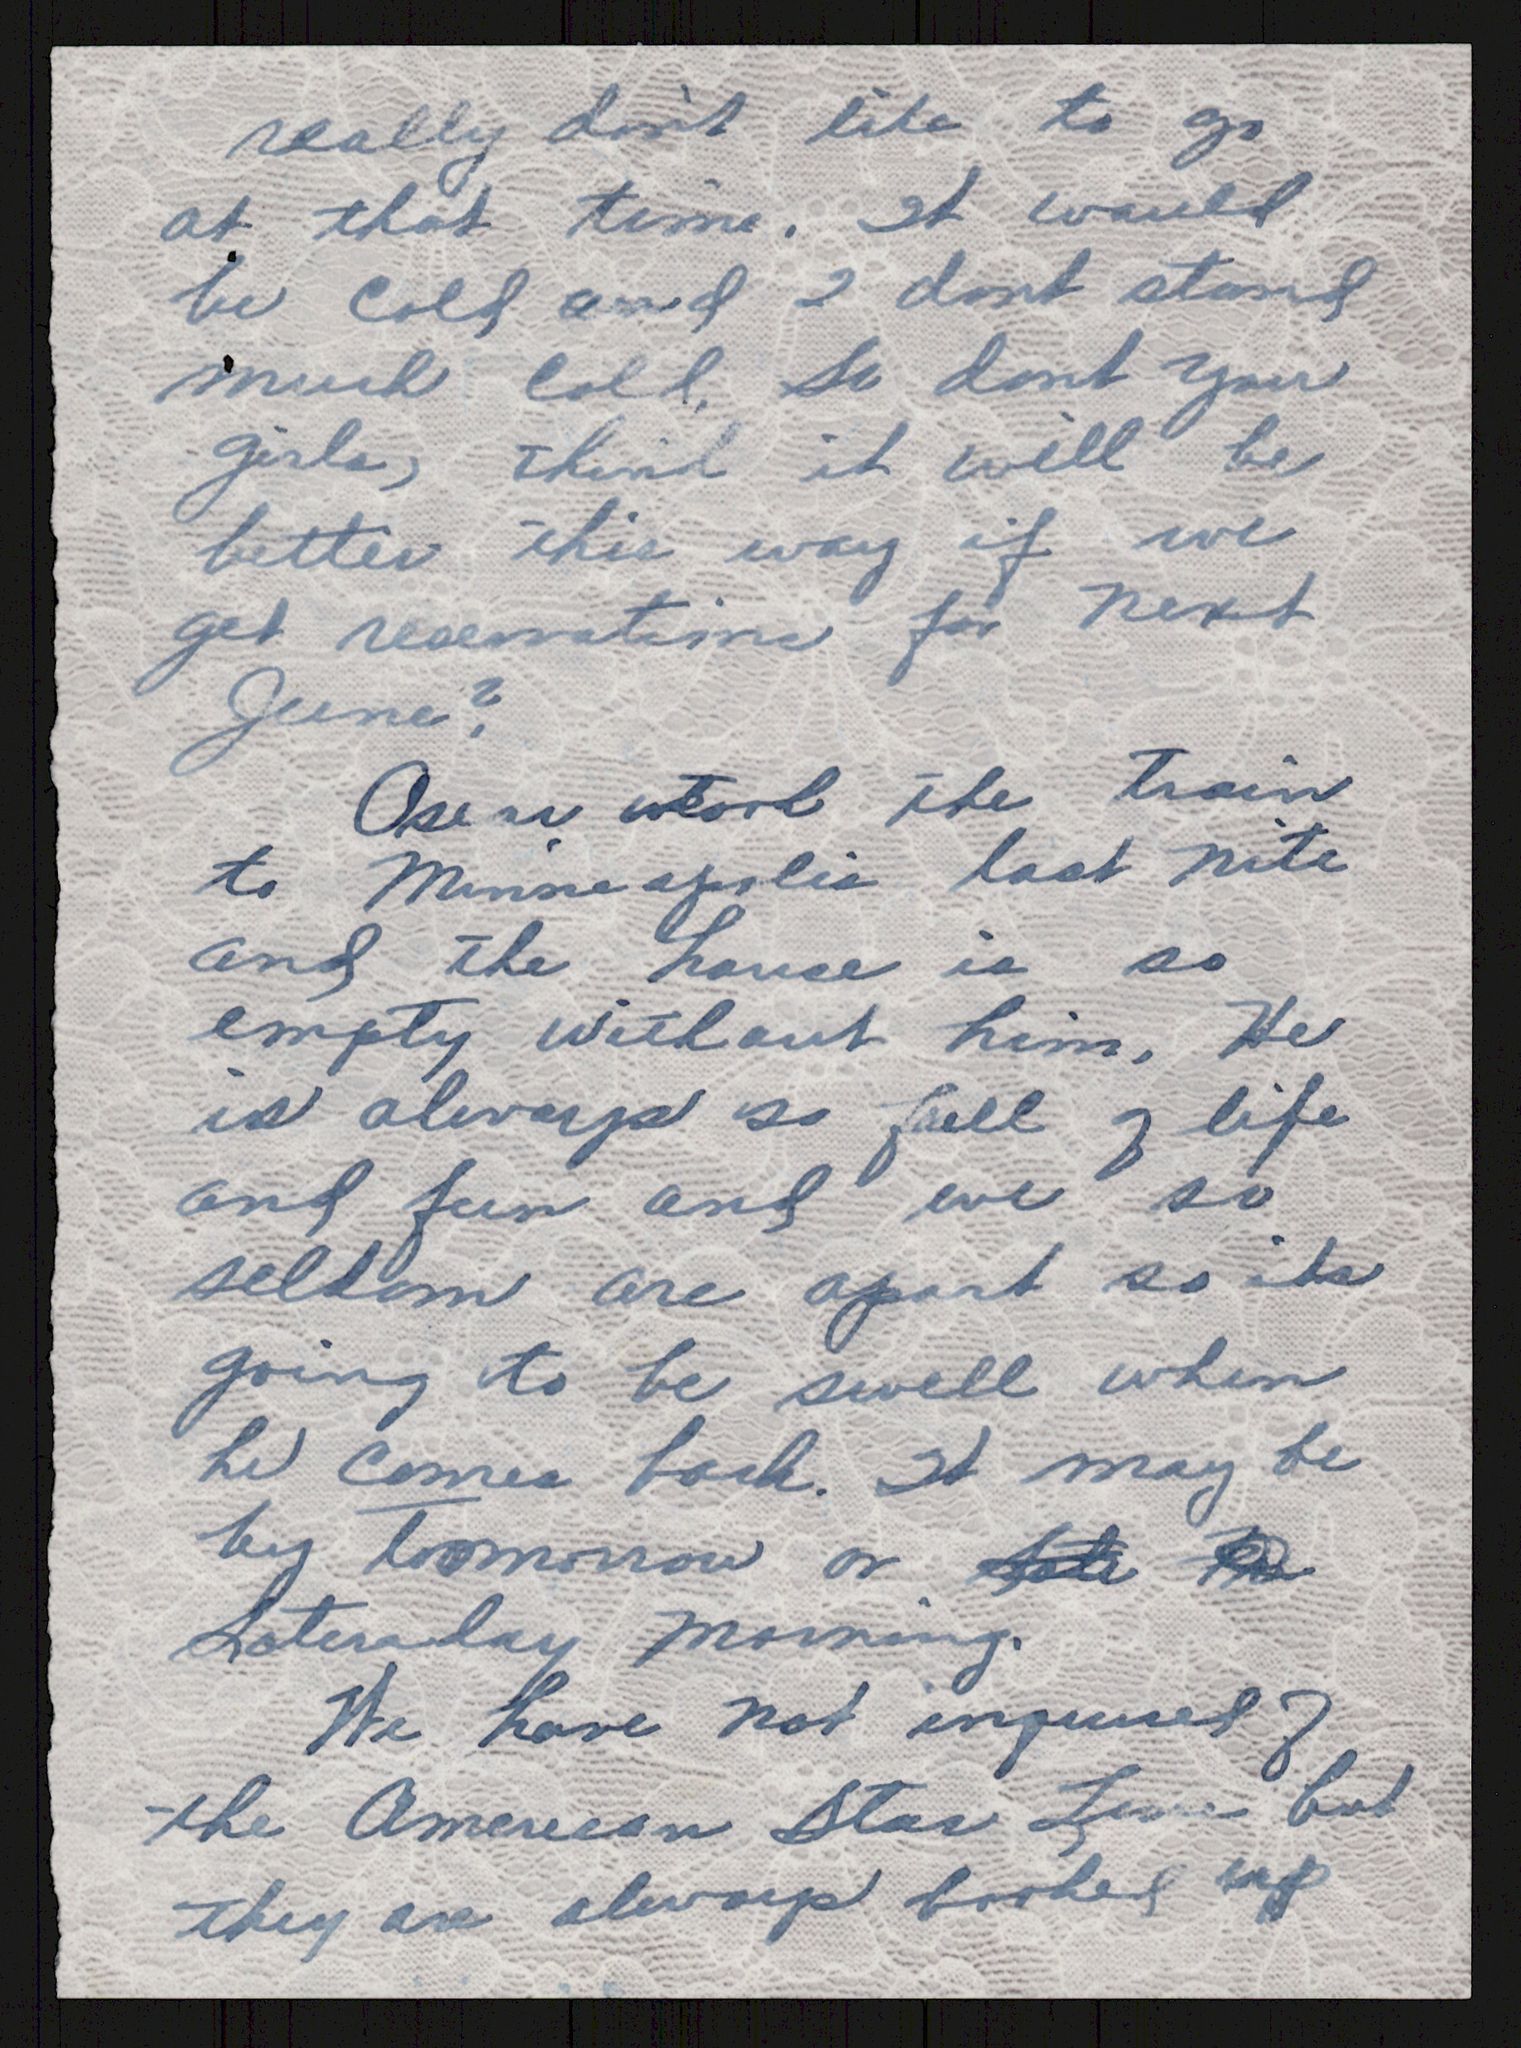 really don't like to go
at that time. It would
be cold and I dont stand
much cold. So dont your
girls, think it will be
better this way if we
get reservations for next
June?
Oscar took the train
to Minneapolis last nite
and the house is so
empty without him. He
is always so full of life
and fun and we so
seldom are apart so its
going to be swell when
he comes back. It may be
by Toomorrow or
Saterday morning.
We have not inquired of
the American Star Line but
they are always booked up